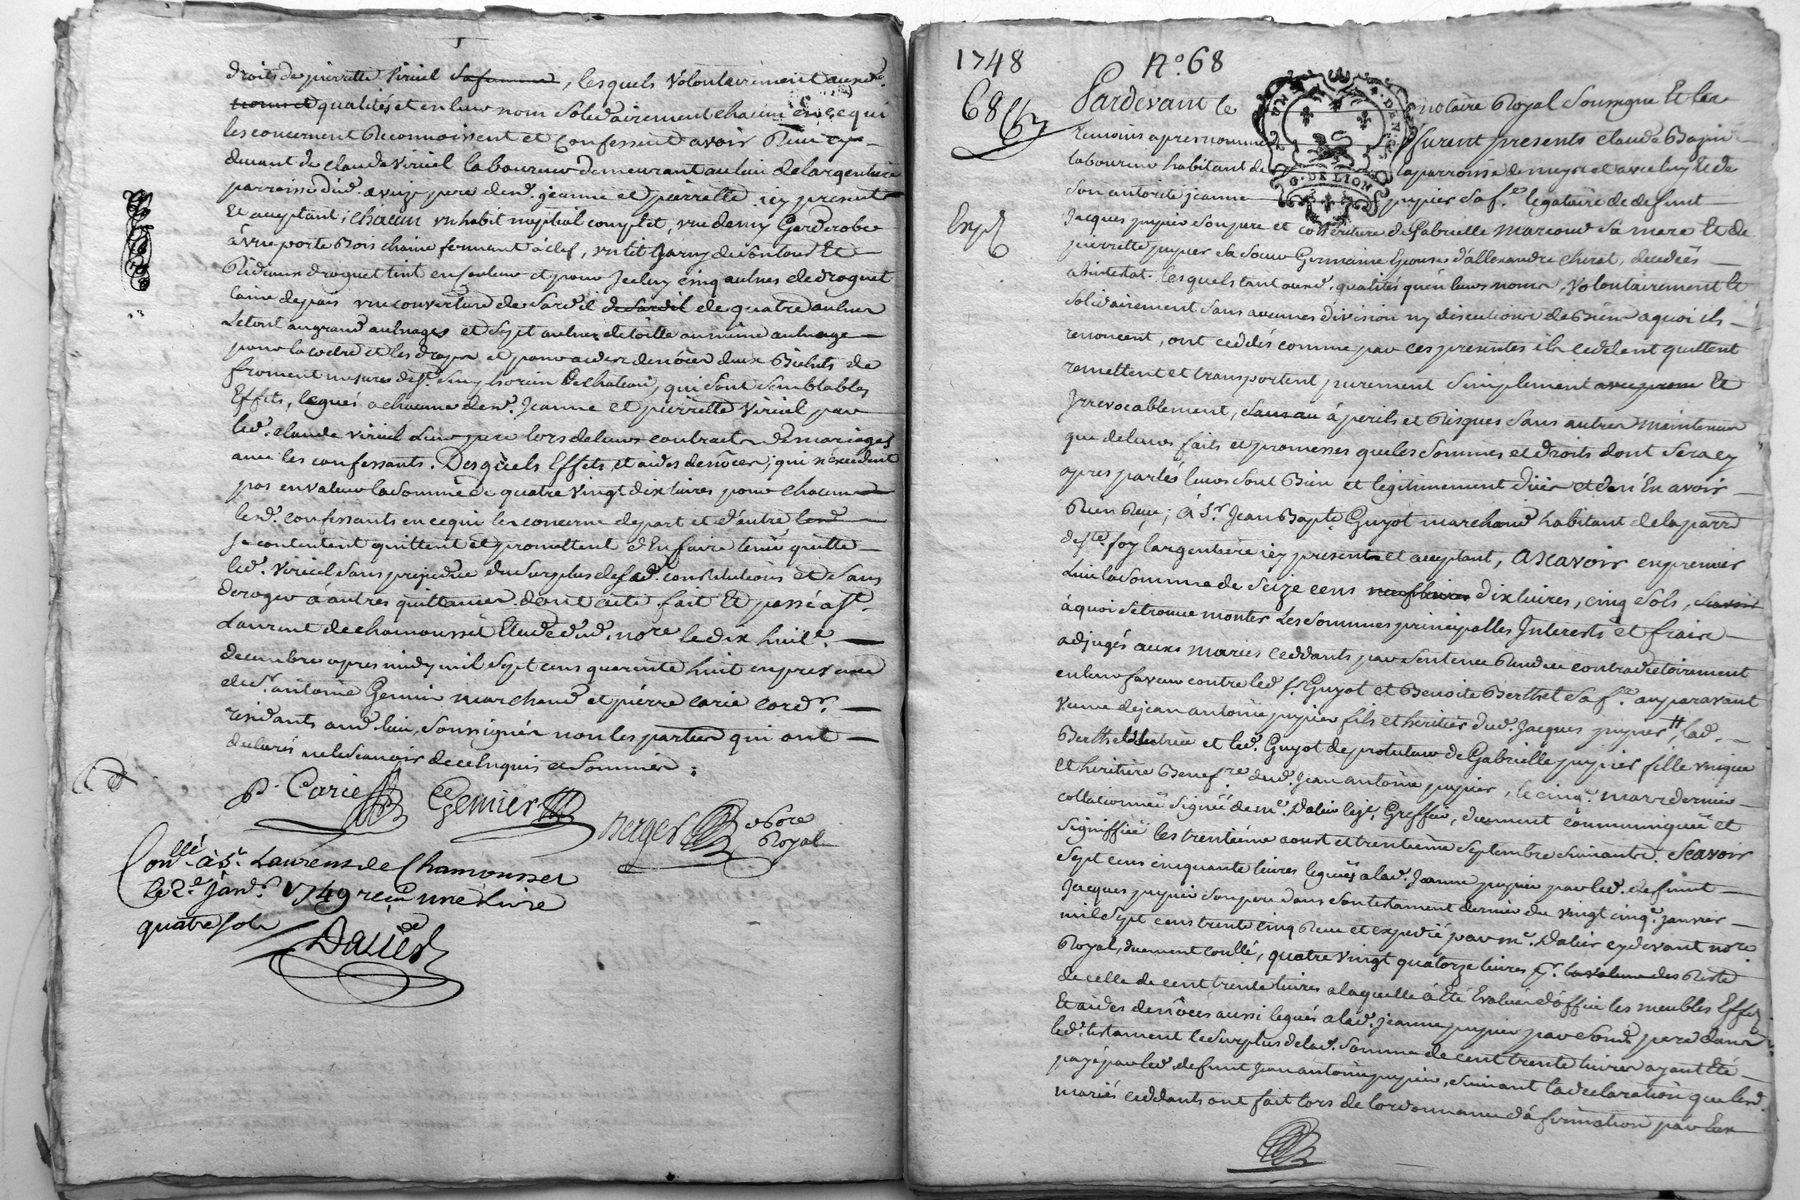 droits de pierrette Viricel sa femme, lesquels volontairement auxd.
noms et qualités et en leur nom solidairement chacun en ce qui
les concernent Reconnoissent et Confessent avoir Receu cy
devant de claude viricel laboureur demeurant au lieu de largentiere
parroisse dud. aveyze pere desd. jeanne et pierrette icy present
Et aceptant, chacun un habit nuptial complet, une demy Garderobe
à une porte Bois chaine fermant à clef, un lit Garny de son tour et
Rideaux droguet teint en couleur et pour Jceluy cinq aulnes de droguet
laine de pais une couverture de Sardil de Sardil de quatre aulnes
Le tout au grand aulnages et Sept aulnes de toille au meme aulnage
pour la coëtre et les draps et pour aides de nôces deux Bichets de
froment mesures de St. Simphorien Le chateau, qui sont Semblables
Effets, legués a chacune desd. Jeanne et pierrette Viricel par
led. claude viricel Leur pere lors de leurs contracts de mariages
avec les confessants. Desquels Effets, et aides de nôces, qui n'excedent
pas en valeur la somme de quatre vingt dix livres pour chacun
lesd. confessants en ce qui les concerne de part et d'autre lesd.
se contentent quittent et promettent d'En faire tenir quitte
led. viricel sans prejudice du surplus desd. constitutions et sans
deroger à autres quittances. dont acte fait Et passé a St.
Laurent de chamousset Etude dud. nore le dix huit
decembre apres midy mil Sept cens quarente huit en presence
de Sr. antoine Gemier marchand et pierre carie cord.
residants aud. lieu, soussignés non les parties qui ont
declarés ne le scavoir de ce Enquis et sommés.
P. Carie Gemier Berger nore
Royal
Conllé à St. Laurens de Chamousset
le 2e. janr. 1749 recu une Livre
quatre sols
Daviès
1748 No. 68
68
Expd
Pardevant le notaire Royal Soussigné Et les
temoins apres nommés furent presents claude Bajin
laboureur habitant de la parroisse de meys et avec luy et de
son autorité jeanne pupier sa fe. legataire de defunt
G. DE LION
Jacques pupier son pere et cohéritiere de Gabrielle marcoud sa mere Et de
pierrette pupier sa soeur Germaine Epouse d'allexandre chirat, decedées
abintestat. lesquels tant auxd. qualités qu'en leurs noms, volontairement et
solidairement sans aucunes division ny discution de Biens a quoi ils
renoncent, ont ceddés comme par ces presentes ils ceddent quittent
remettent et transportent purement Simplement avec prom Et
Jrrevocablement, sans au à perils et Risques sans autres maintenue
que de leurs faits et promesses que les sommes et droits dont sera cy
apres parlés leurs sont Bien et legitimement düs et de n'En avoir
Rien Receu; à Sr. Jean Bapte Guyot marchand habitant de la parre
de Ste. foy largentiere icy present et aceptant, a scavoir en premier
Lieu la somme de seize cens neuf livres dix livres, cinq sols, scavoir
à quoi se trouve monter Les sommes principalles Jnterests et frais
adjugés auxd. mariés ceddants par sentence Rendue contradictoirement
en leur faveur contre led. Sr. Guyot et Benoite Berthet sa fe. auparavant
veuve de jean antoine pupier fils et heritier dud. Jacques pupier, lad.
Berthet tutrice et led. Guyot de protuteur de Gabrielle pupier fille unique
et heritiere Benefre. dud. Jean antoine pupier, le cinq. mars dernier
collationnée signée de me. Dalin Greffier, duement communiquée et
signiffiée les trentieme aoust et trentieme septembre suivants. Scavoir
sept cens cinquante livres legués à lad. Jeanne pupier par led. defunt
Jacques pupier son pere dans son testament dernier du vingt cinq. janvier
mil sept cens trente cinq Receu et expedié par me. Dalier cy devant nore
Royal, duement conllé, quatre vingt quatorze livres pr. la valeur des Reste
de celle de cent trente livres a laquelle à Eté Evalué d'office les meubles Effets
Et aides de nôces aussi legués a lad. jeanne pupier par sond. pere dans
led. testament le surplus de lad. somme de cent trente livres ayant Eté
payé par led. defunt Jean antoine pupier, suivant la declaration que lesd.
mariés ceddants ont fait lors de l'ordonnance d'afirmation par Eux